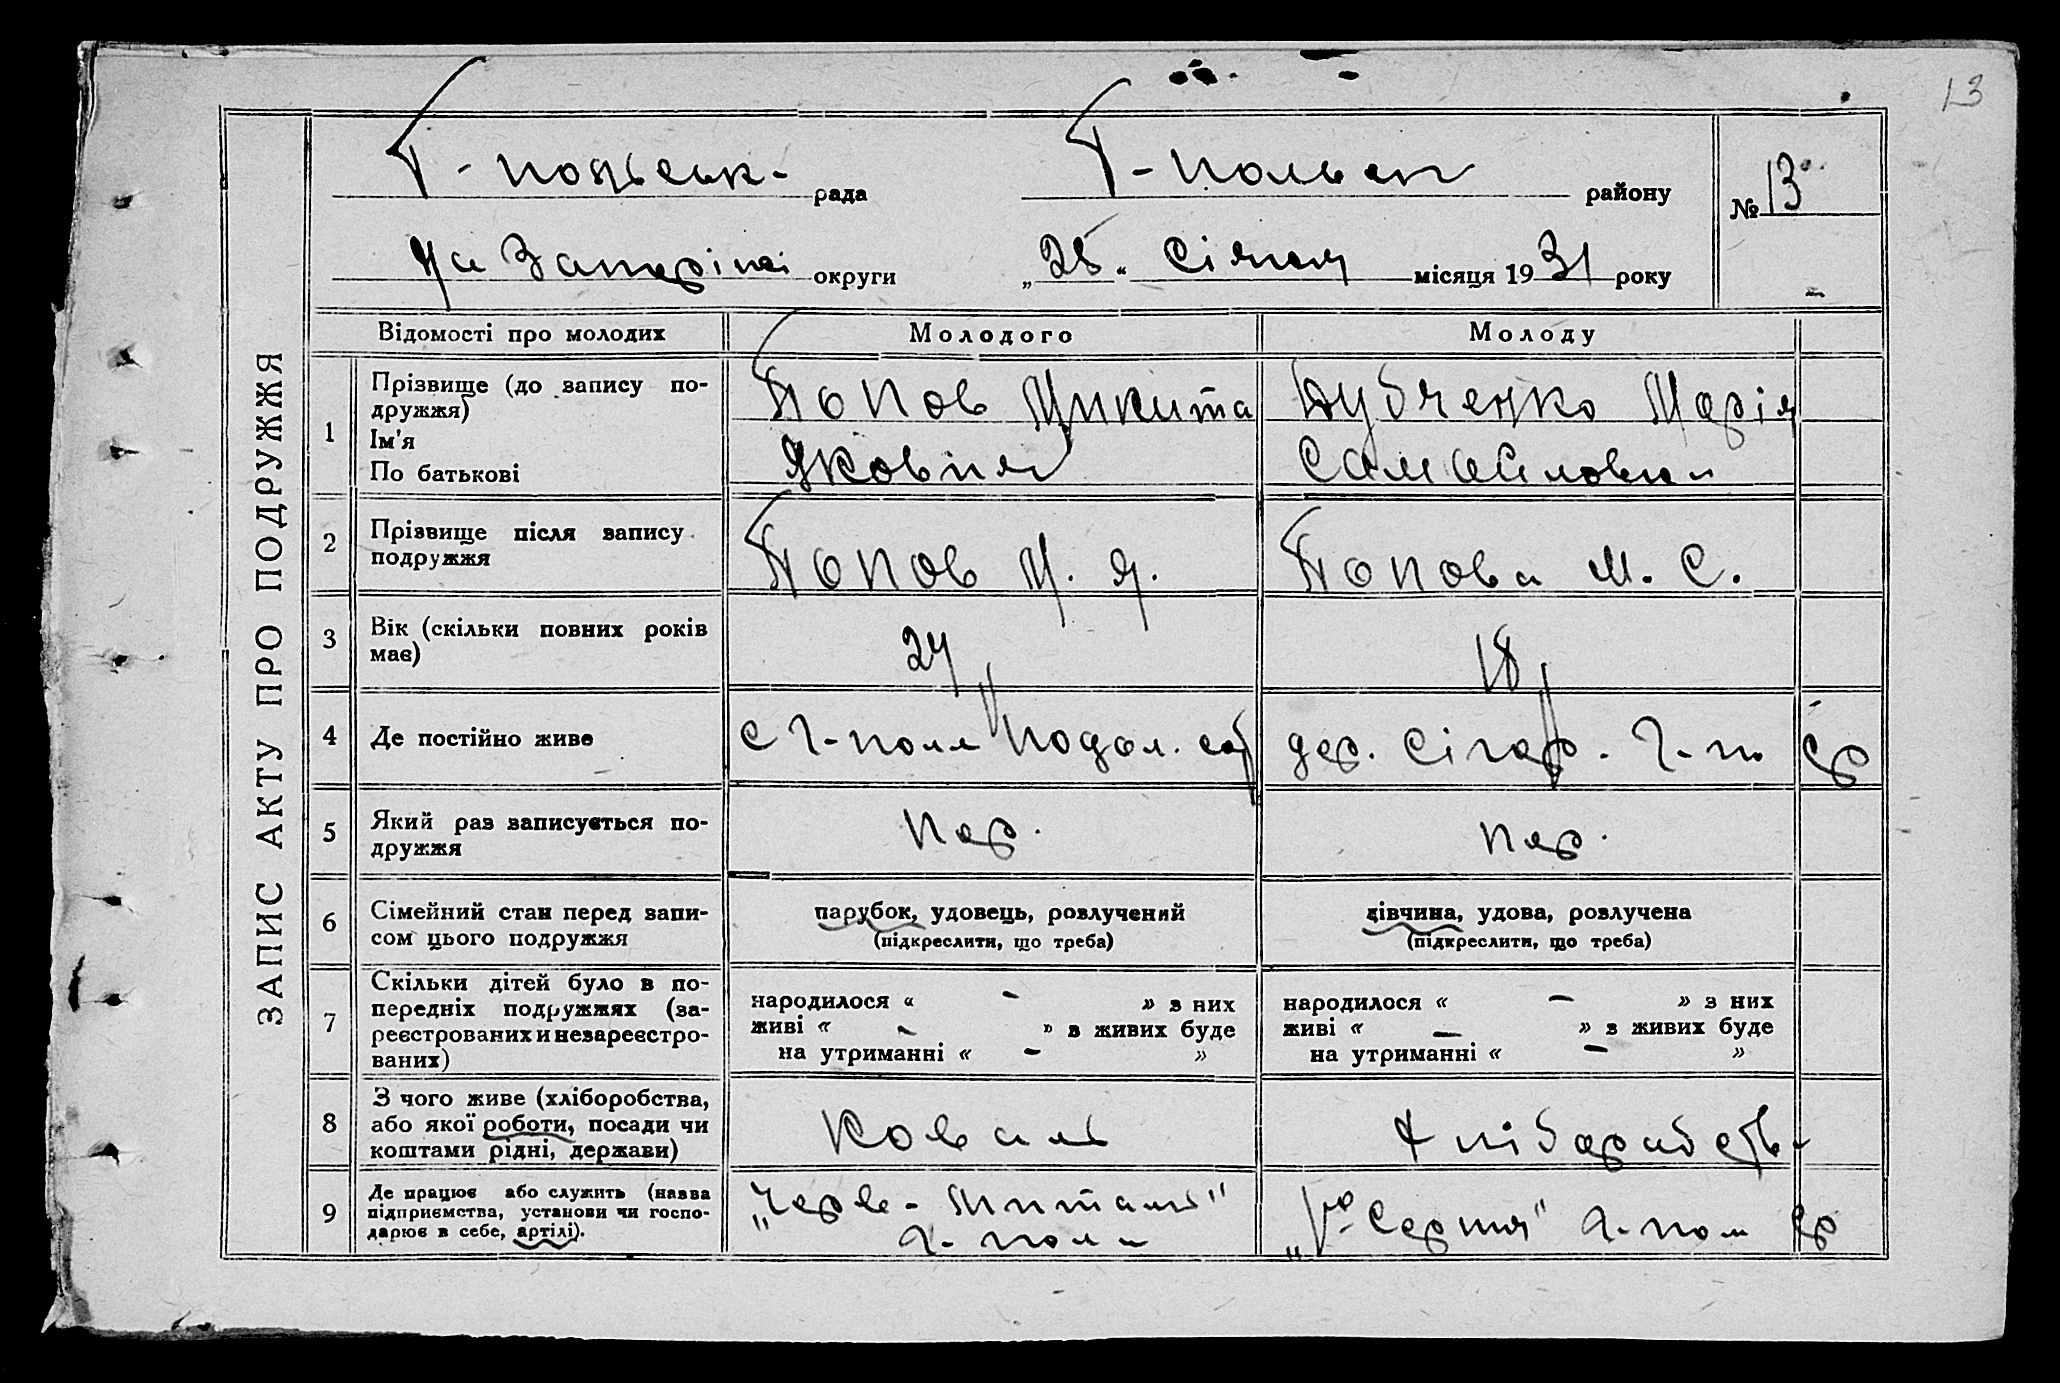 13
Г-польськ- рада
Г-польск району
№ 13
Запоріжжі округи
„28“ Січня місяця 1931 року
ЗАПИС АКТУ ПРО ПОДРУЖЖЯ
Відомості про молодих
Молодого
Молоду
1
Прізвище (до запису по-
дружжя)
Ім'я
По батькові
Попов Микита
Яковлев
Дубченко Марія
Самойловна
2
Прізвище після запису
подружжя
Попов М. Я.
Попова М. С.
3
Вік (скільки повних років
має)
24
18
4
Де постійно живе
С Г-поле Подол.
дер. Г-п
5
Який раз записується по-
дружжя
пер.
пер.
6
Сімейний стан перед запи-
сом цього подружжя
парубок, удовець, розлучений
(підкреслити, що треба)
дівчина, удова, розлучена
(підкреслити, що треба)
7
Скільки дітей було в по-
передніх подружжях (за-
реєстрованих и незареєстро-
ваних)
народилося « – » з них
живі « – » з живих буде
на утриманні « – »
народилося « – » з них
живі « – » з живих буде
на утриманні « – »
8
З чого живе (хліборобства,
або якої роботи, посади чи
коштами рідні, держави)
Коваль
9
Де працює або служить (назва
підприємства, установи чи госпо-
дарює в себе, артілі).
Г-поле
Г-пол